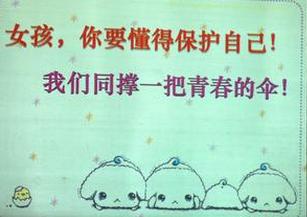 女孩，你要懂得保护自己！
我们同撑一把青春的伞！